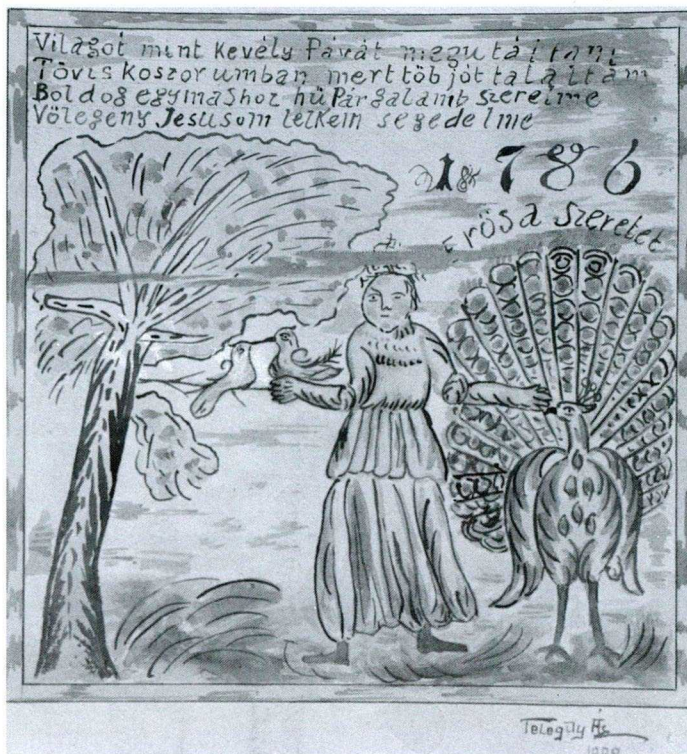 Világot mint Kevély Pávát megutáltam
Tövis koszorumban mert töb jót találtam
Boldog egymashoz hű Párgalamb szerelme
Völegeny Jesusom lelkem segedelme
1786
Erös a Szeretet